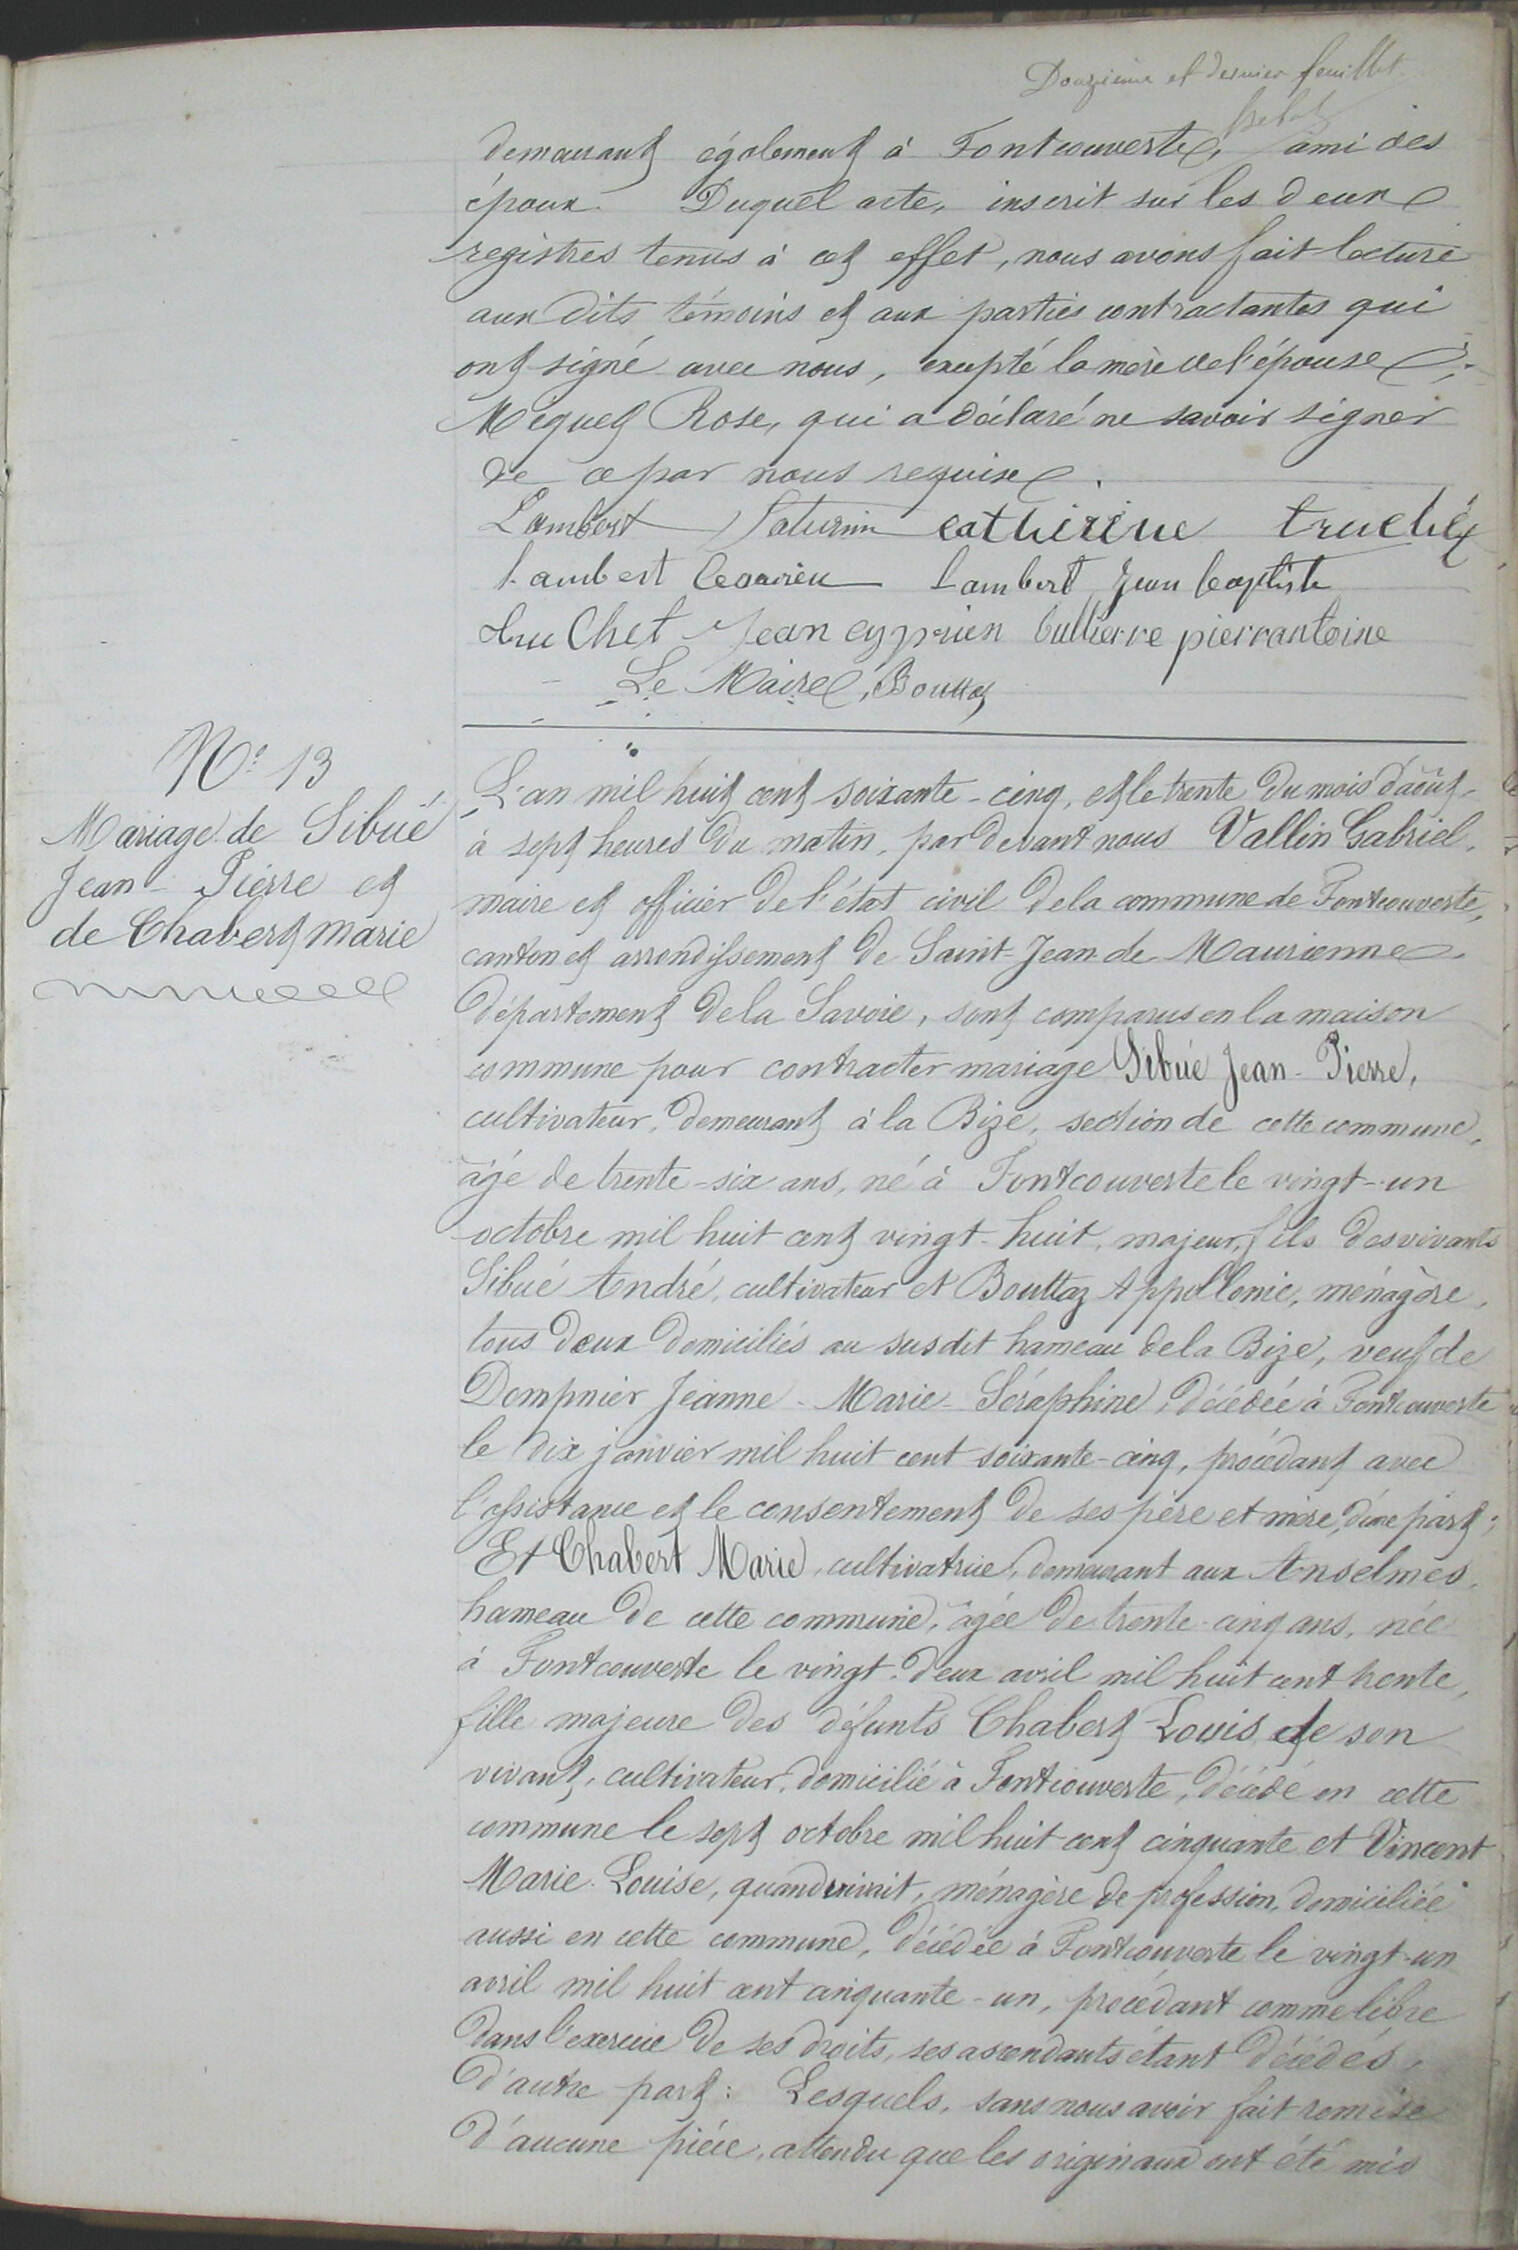 Douzième et dernier feuillet.
demeurant également à Fontcouverte, ami des
époux. Duquel acte, inscrit sur les deux
registres tenus à cet effet, nous avons fait lecture
aux dits témoins et aux parties contractantes qui
ont signé avec nous, excepté la mère de l'épouse
Miquet Rose, qui a déclaré ne savoir signer
de ce par nous requise.
Lambert Saturnin catherine truchet
Lambert Lambert Jean baptiste
truChet Jean cyprien bullierre pierrantoine
Le Maire, Bouttaz
N° 13
Mariage de Sibué
Jean-Pierre et
de Chabert Marie
L'an mil huit cent soixante-cinq, et le trente du mois d'août
à sept heures du matin, par devant nous Vallin Gabriel,
maire et officier de l'état civil de la commune de Fontcouverte,
canton et arrondissement de Saint-Jean de Maurienne,
département de la Savoie, sont comparus en la maison
commune pour contracter mariage Sibué Jean-Pierre,
cultivateur, demeurant à la Bize, section de cette commune,
âgé de trente-six ans, né à Fontcouverte le vingt-un
octobre mil huit cent vingt-huit, majeur, fils des vivants
Sibué André, cultivateur et Bouttaz Appollonie, ménagère,
tous deux domiciliés au susdit hameau de la Bize, veuf de
Dompnier Jeanne-Marie-Séraphine, décédée à Fontcouverte
le dix janvier mil huit cent soixante-cinq, procédant avec
l'assistance et le consentement de ses père et mère, d'une part;
Et Chabert Marie, cultivatrice, demeurant aux Anselmes,
hameau de cette commune, âgée de trente-cinq ans, née
à Fontcouverte le vingt-deux avril mil huit cent trente,
fille majeure des défunts Chabert Louis, de son
vivant, cultivateur, domicilié à Fontcouverte, décédé en cette
commune le sept octobre mil huit cent cinquante et Vincent
Marie-Louise, quand vivait, ménagère de profession, domiciliée
aussi en cette commune, décédée à Fontcouverte le vingt-un
avril mil huit cent cinquante-un, procédant comme libre
dans l'exercice de ses droits, ses ascendants étant décédés,
d'autre part: Lesquels, sans nous avoir fait remise
d'aucune pièce, attendu que les originaux ont été mis